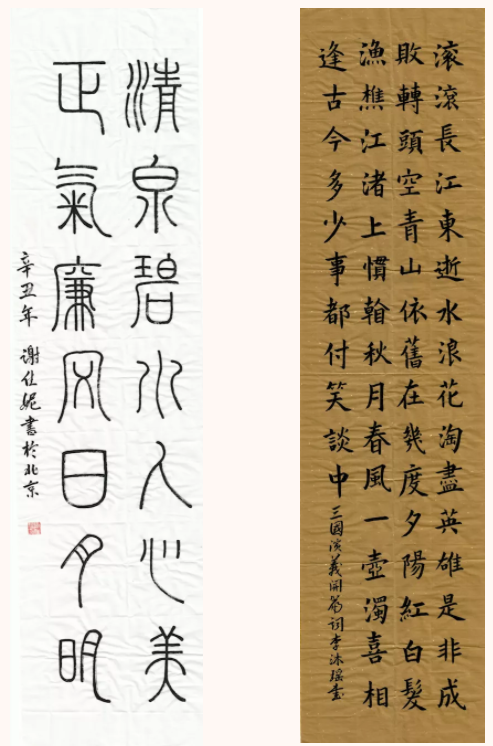 清泉碧水人心美
正氣廉風日月明
辛丑年 謝仕妮書於北京
滾滾長江東逝水浪花淘盡英雄是非成
敗轉頭空青山依舊在幾度夕陽紅白髮
漁樵江渚上慣翰秋月春風一壺濁喜相
逢古今多少事都付笑談中
三國演義開篇詞李沐瑶書